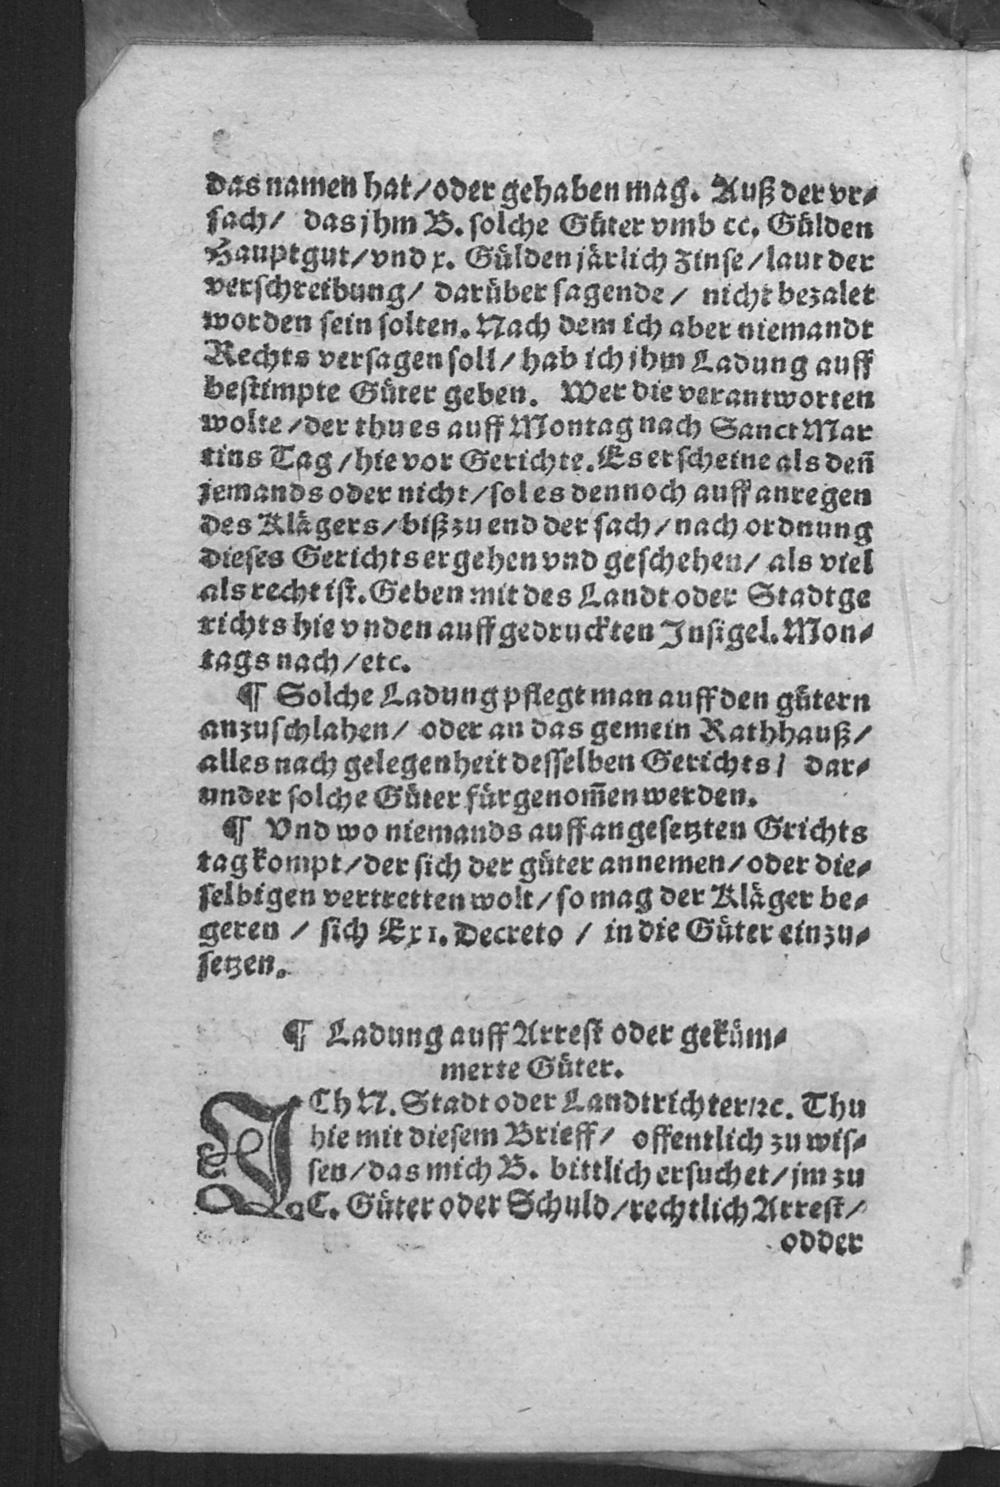 das namen hat/oder gehaben mag. Auß der vr⸗
sach/ das jhm B. solche Güter vmb cc. Gülden
Hauptgut/vnd x. Gülden järlich zinse/laut der
verschreibung/ darüber sagende/ nicht bezalet
worden sein solten. Nach dem ich aber niemandt
Rechts versagen soll/hab ich jhm Ladung auff
bestimpte Güter geben. Wer die verantworten
wolte/der thu es auff Montag nach Sanct Mar
tins Tag/hie vor Gerichte. Es erscheine als deñ
jemands oder nicht/sol es dennoch auff anregen
des Klägers/biß zu end der sach/nach ordnung
dieses Gerichts ergehen vnd geschehen/ als viel
als recht ist. Geben mit des Landt oder Stadtge
richts hie vnden auffgedruckten Insigel. Mon⸗
tags nach/etc.
¶ Solche Ladung pflegt man auff den gütern
anzuschlahen/ oder an das gemein Rathhauß/
alles nach gelegenheit desselben Gerichts/ dar⸗
vnder solche Güter fürgenom̃en werden.
¶ Vnd wo niemands auff angesetzten Grichts
tag kompt/der sich der güter annemen/oder die⸗
selbigen vertretten wolt/so mag der Kläger be⸗
geren / sich Ex 1. Decreto / in die Güter einzu⸗
setzen.
¶ Ladung auff Arrest oder geküm⸗
merte Güter.
ICh N. Stadt oder Landtrichter/ꝛc. Thu
hie mit diesem Brieff/ offentlich zu wis⸗
sen/das mich B. bittlich ersuchet/jm zu
C. Güter oder Schuld/rechtlich Arrest/
odder